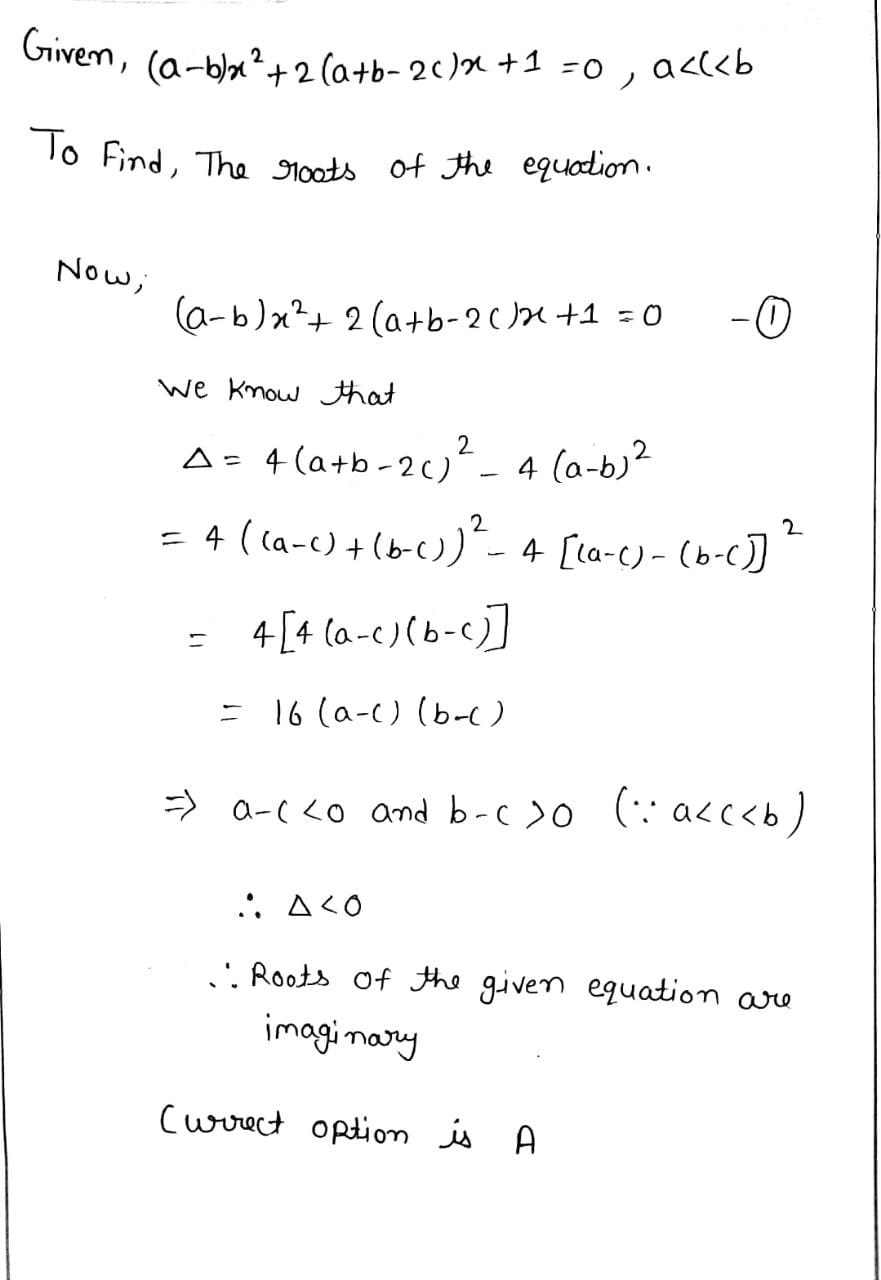 Given, (a-b)x²+2(a+b-2c)x+1=0, a<c<b
To Find, The roots of the equation.
Now,
(a-b)x²+ 2(a+b-2c)x+1=0 -①
We know that
Δ= 4(a+b-2c)²- 4(a-b)²
= 4((a-c)+(b-c))²- 4[(a-c)-(b-c)]²
= 4[4(a-c)(b-c)]
= 16(a-c)(b-c)
⇒ a-c<0 and b-c>0 (∵ a<c<b)
∴ Δ<0
∴ Roots of the given equation are
imaginary
Currect option is A